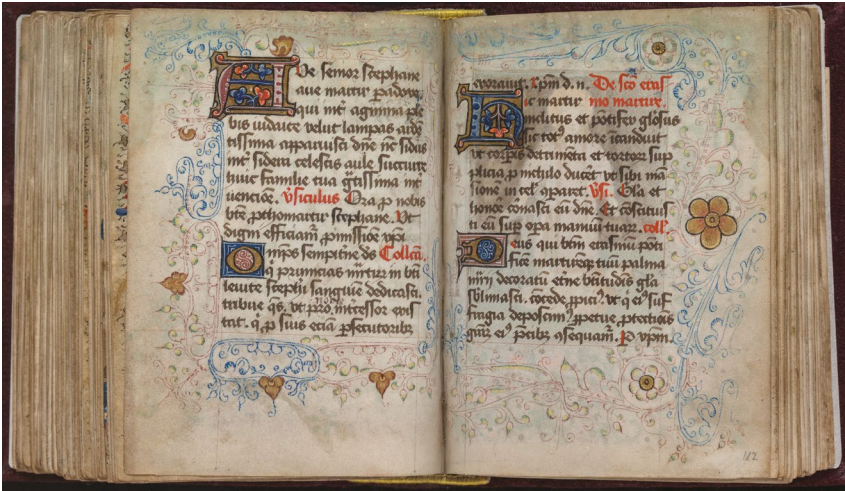 Ave semor stephane
ave martir
qui int agmina ple
bis iudaice velut lampas
tissima apparuisti dne sidus
int sidera celestis aule succurre
huic familie tua int
vencione. vsiculus Ora p nobis
bte pthomartir stephane. Ut
digni efficiam pmissioe xpi
Omps sempitne ds Collca.
q primicias mrtirum in bti
levite stephi sanguie dedicasti.
tribue qs. ut pro intcessor
q p suis eciam psecutoribz
exoravit. xpm d. n. De sco eras
Hic martir mo martire.
inclitus et potifex gloosus
sic amore icanduit
ut corpis detrimeta et tortor sup
plicia p nichilo ducet ut sibi ma
sione in cel pparet. vsi. Gla et
honoe eu dne. Et costituis
ti eu sup opa manuu tuar. coll.
Deus qui btm erasmu poti
fice martiremq tuu palma
decoratu btitudis gla
sblimasti. cocede ppici ut q ei suf
fragia deposcim ppetue ptectiois
ei pcibz osequam. P xpm.
182